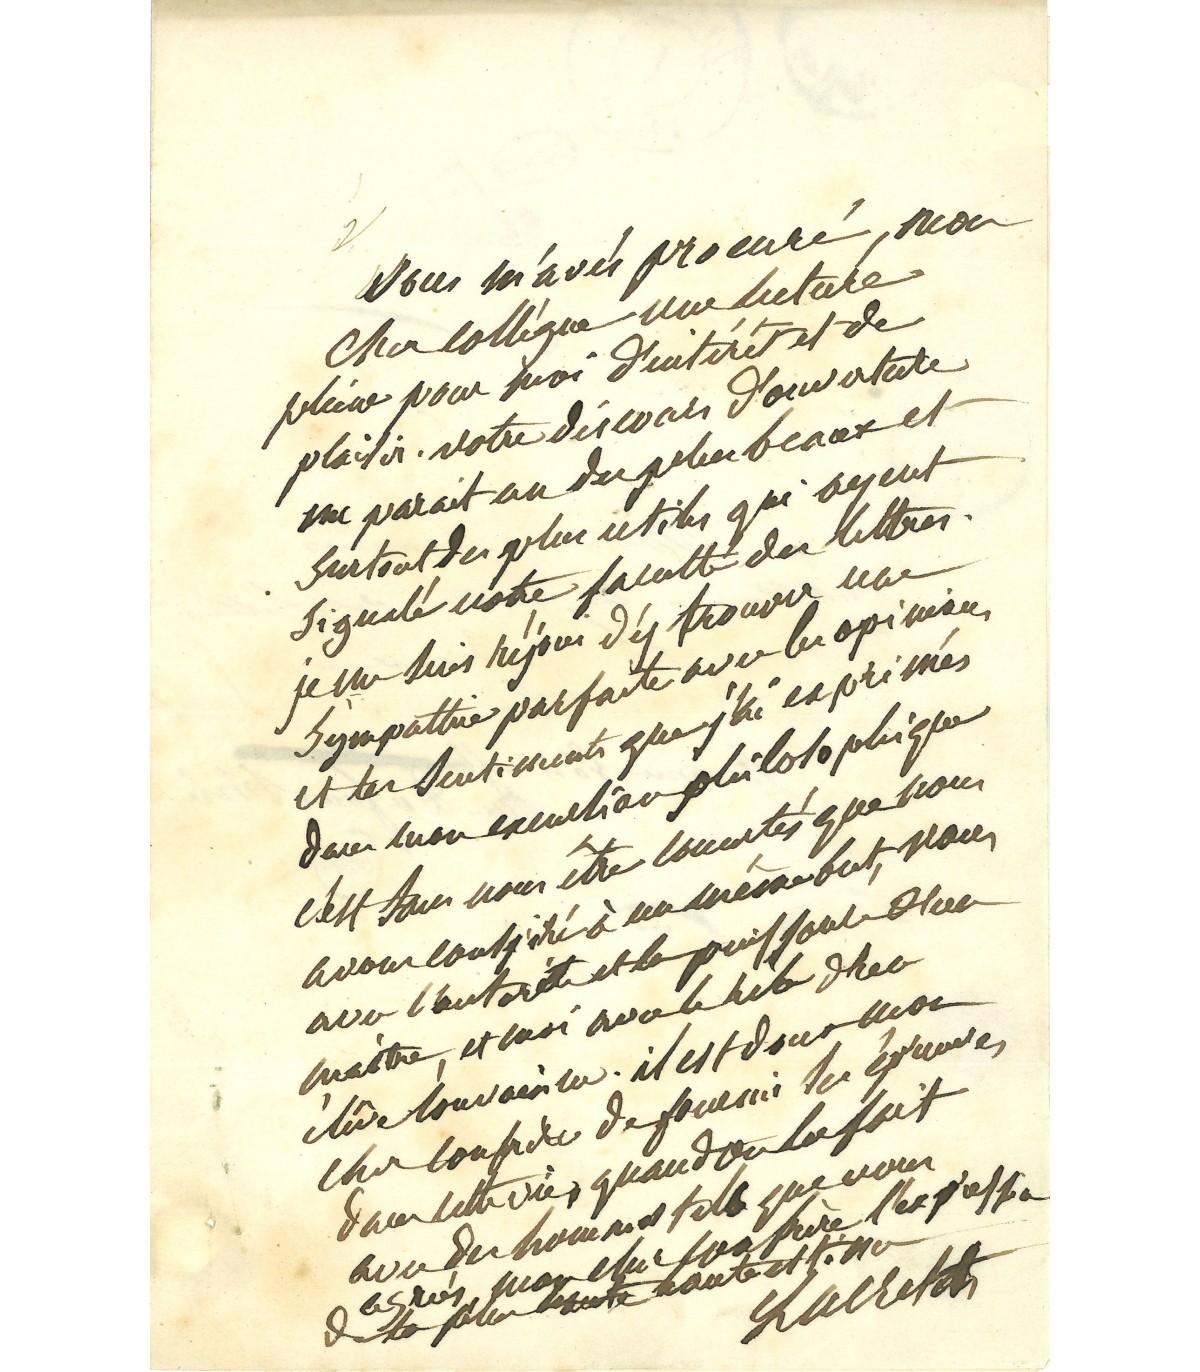 Vous m'avés procuré, mon
cher collégue une lecture
pleine pour moi d'intérêt et de
plaisir. votre discours d'ouverture
me parait un des plus beaux et
surtout des plus utiles qui ayent
signalé notre faculté des lettres.
je me suis réjoui d'y trouver une
sympathie parfaite avec les opinions
et les sentiments que j'ai exprimés
dans mon excursion philosophique
c'est sans nous être concertés que nous
avons conspiré à un même but, vous
avec l'autorité et la puissance d'un
maître, et moi avec le zèle d'un
élève . il est doux mon
cher confrère de fournir les épreuves
dans cette vie, quand on les fait
avec des hommes tels que vous
agréés mon cher confrère l'expression
de la plus haute estime
Lacretelle